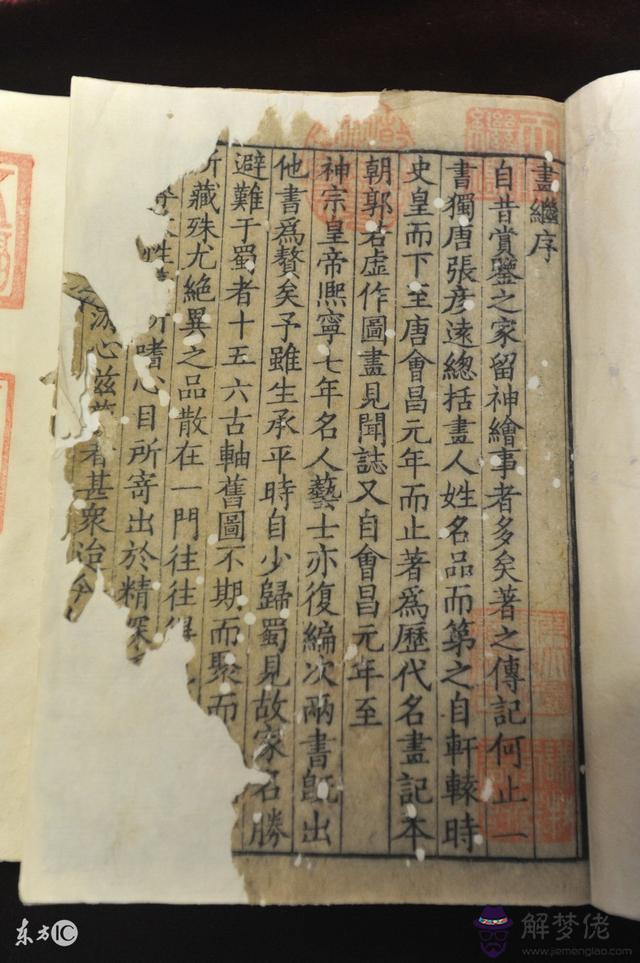 畫繼序
自昔賞鑒之家留神繪事者多矣著之傳記何止一
書獨唐張彥遠總括畫人姓名品而第之自軒轅時
史皇而下至唐會昌元年而止著爲歷代名畫記本
朝郭若虛作圖畫見聞誌又自會昌元年至
神宗皇帝熈寧七年名人藝士亦復編次兩書旣出
他書爲贅矣予雖生承平時自少歸蜀見故家名勝
避難于蜀者十五六古軸舊圖不期而聚而
所藏殊尤絶異之品散在一門往往得
性
所嗜心目所寄出於精深
游心兹藝者甚衆迨今
东方IC
解梦佬
www.jiemenglao.com